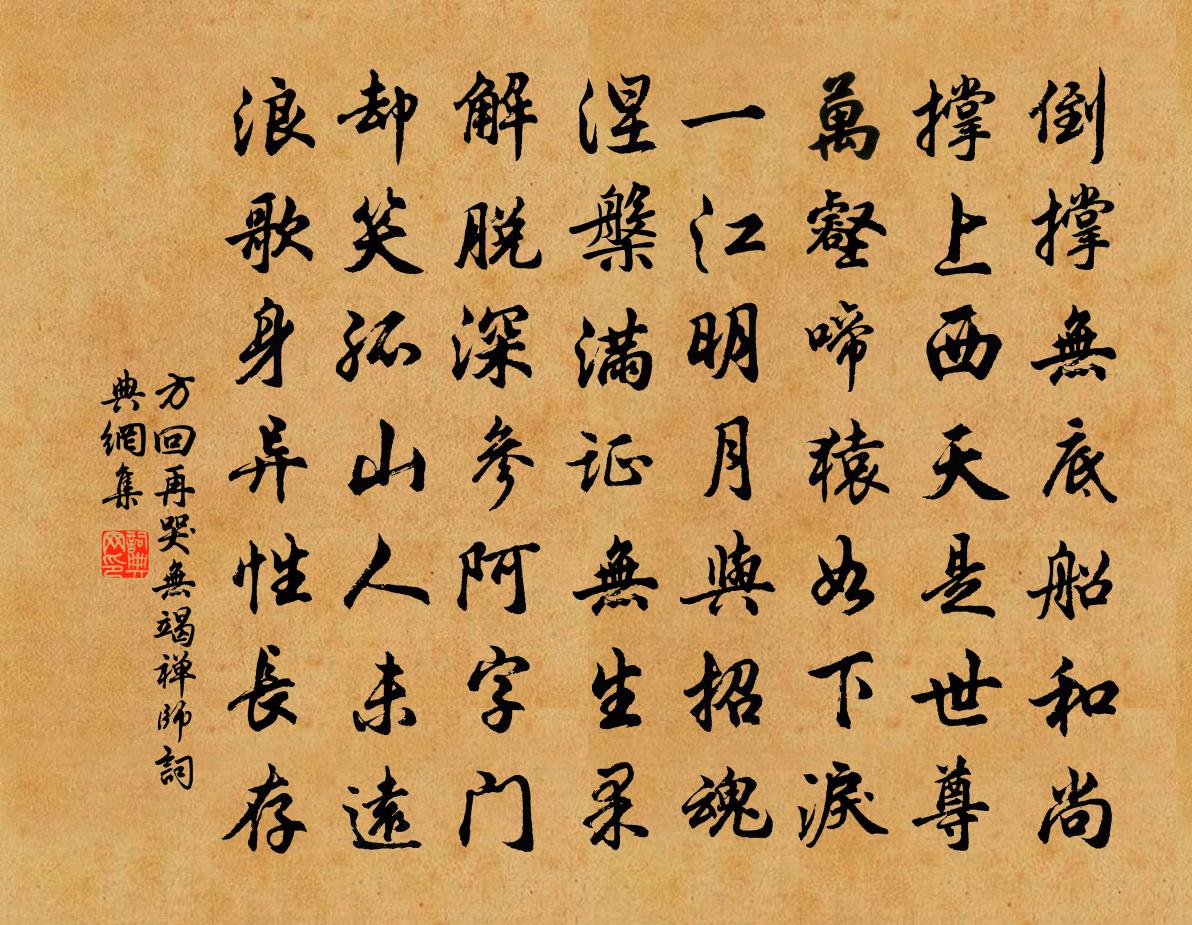 倒撑無底船和尚
撑上西天是世尊
萬壑啼猿如下淚
一江明月與招魂
涅槃滿证無生果
解脱深參阿字門
却笑孤山人未遠
浪歌身异性長存
方回再哭無竭禅師詞
典網集
詞典网印